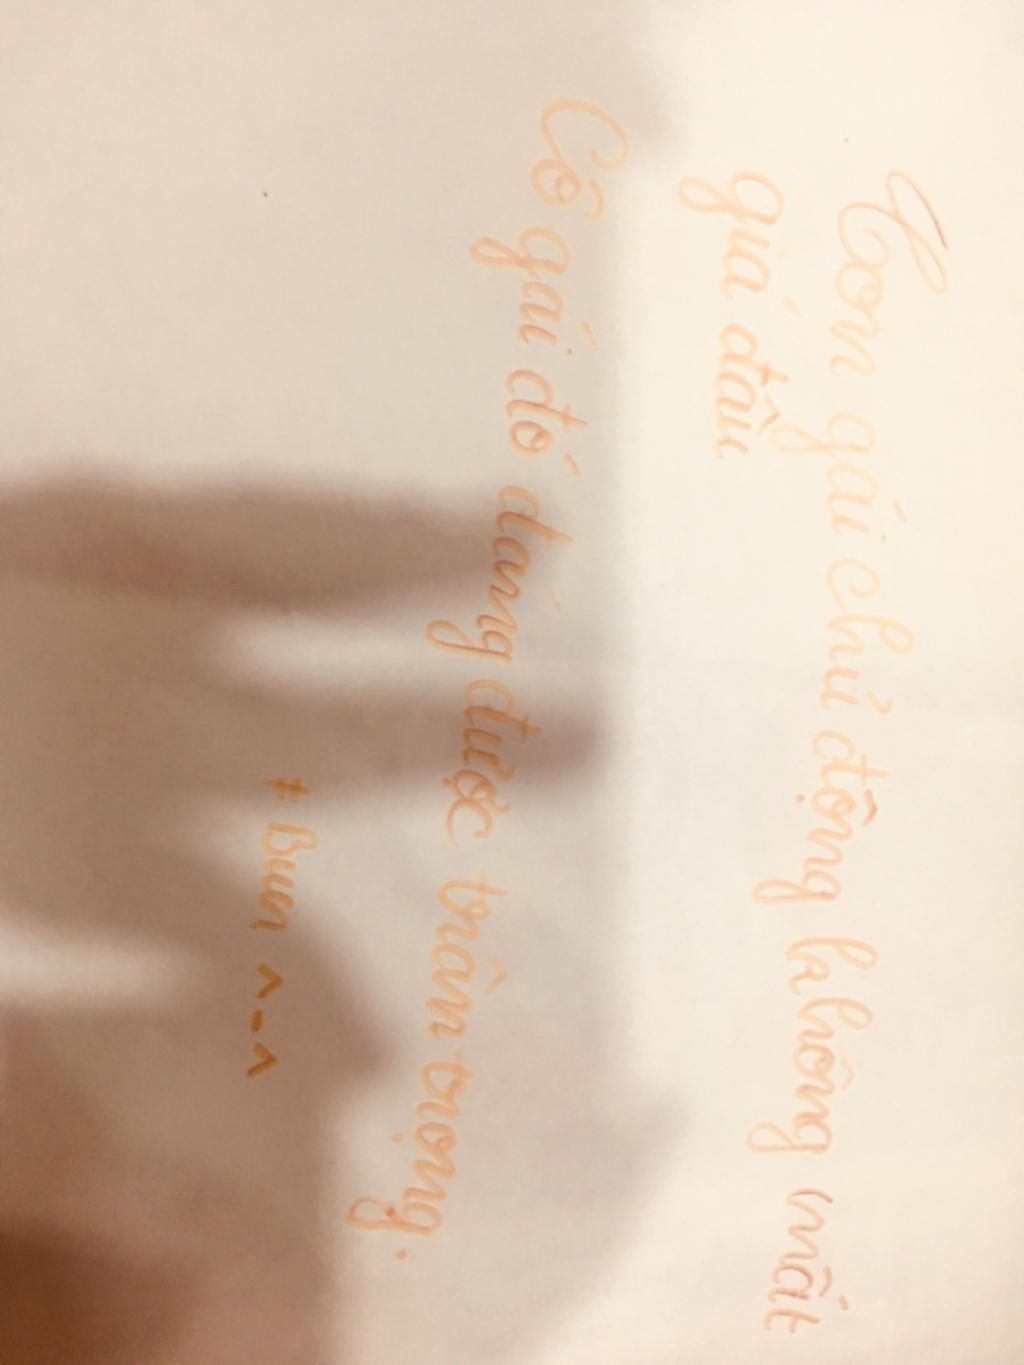 Con gái chủ động không mất
giá đâu
Cô gái đó đáng được trân trọng.
# Bun ^-^